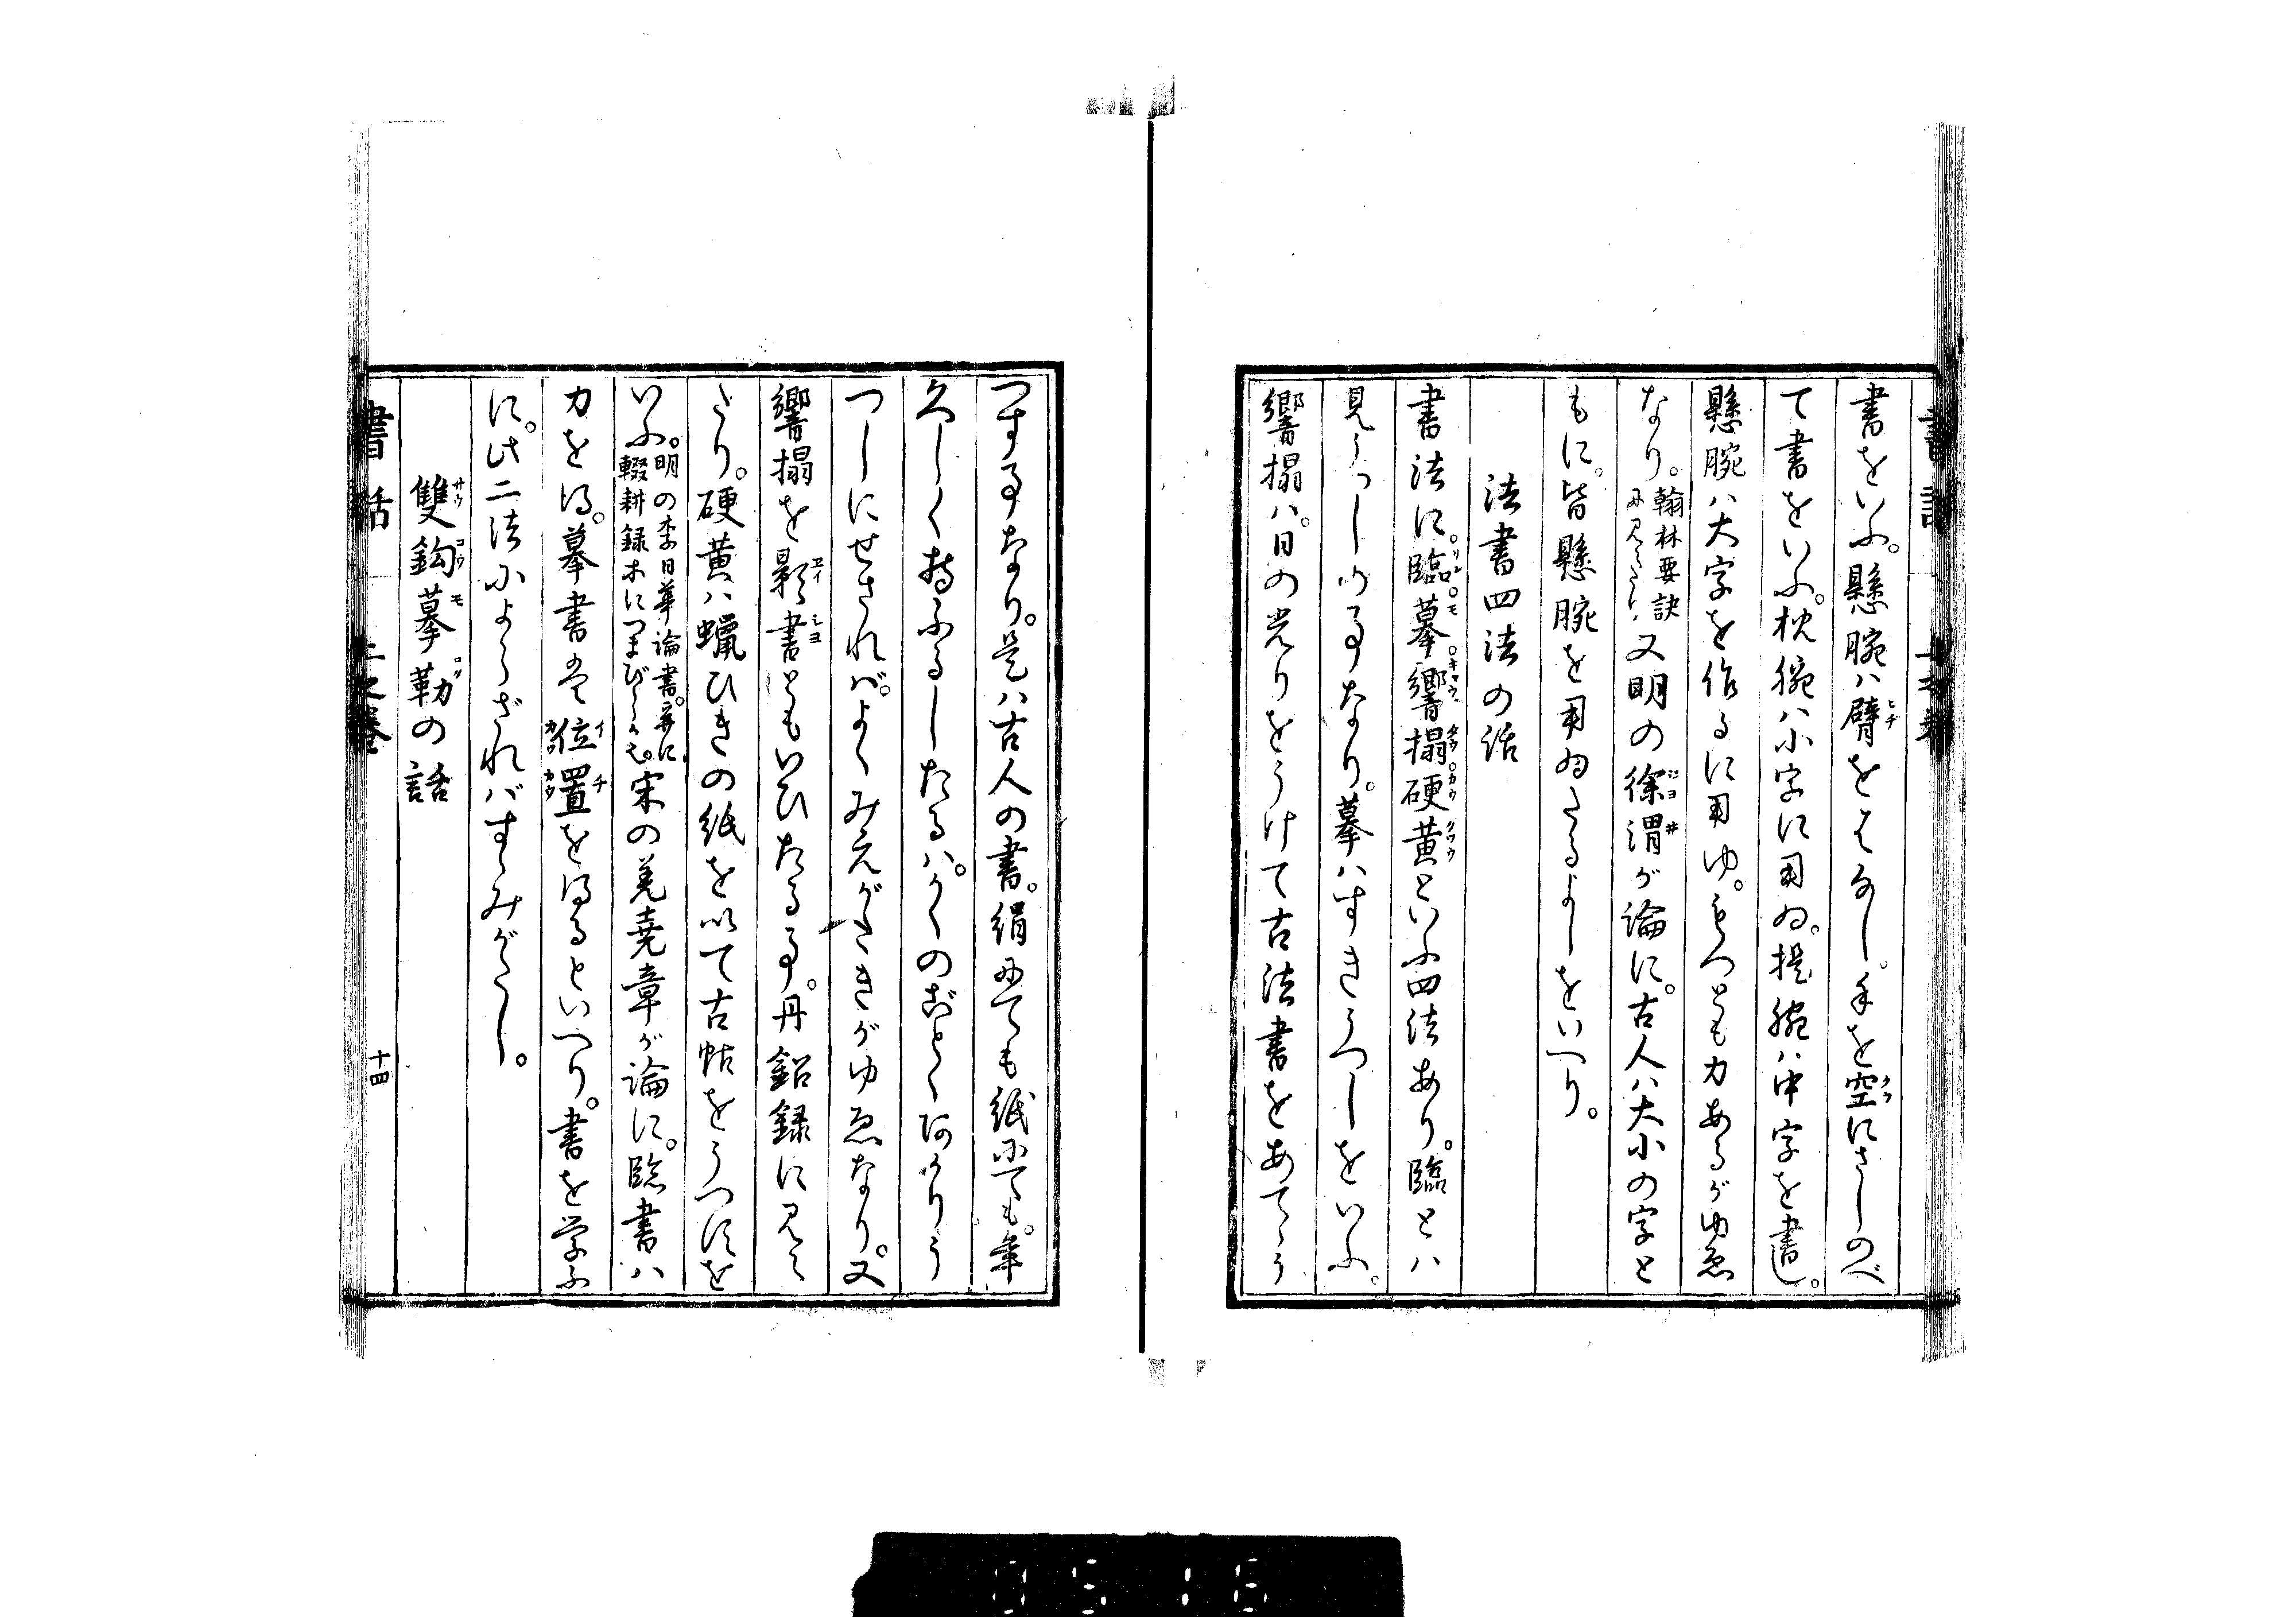 書をいふ。懸腕ハ臂をはなし。手を空にさしのべ
て書をいふ。枕腕ハ小字に用ゐ。提腕ハ中字を書し。
懸腕ハ大字を作るに用ゆ。もつとも力あるがゆゑ
なり。翰林要訣に見えたり又明の徐渭が論に。古人ハ大小の字と
もに。皆懸腕を用ゐたるよしをいへり。
法書四法の話
書法に臨摹響搨硬黄といふ四法あり。臨とハ
見うつしの事なり。摹ハすきうつしをいふ。
響搨ハ。日の光りをうけて古法書をあてゝう
つする事なり。是ハ古人の書。絹にても紙にても。年
久しく持ふるしたるハ。かくのごとくひかりう
つしにせされバ。よくみえがたきがゆゑなり。又
響搨を影書ともいひたる事。丹鉛録に見え
たり。硬黄ハ蠟ひきの紙を以て古帖をうつすを
いふ。明の李日華論書。并に輟耕録本につまびらか也。宋の姜堯章が論に。臨書ハ
力を得。摹書ハ位置を得るといへり。書を学ふ
に。此二法によらざれバすゝみがたし。
雙鈎摹勒の話
書話 上之巻 十四